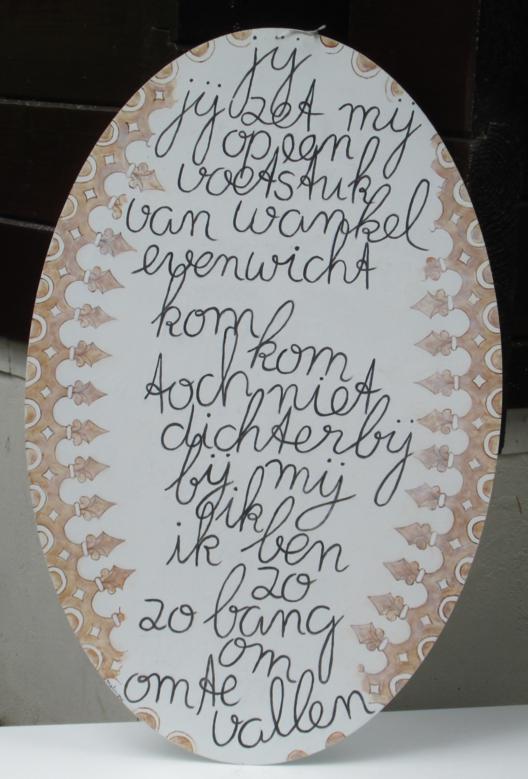 jij
jij zet mij
op een
voetstuk
van wankel
evenwicht
kom
kom
toch niet
dichterbij
bij mij
ik
ik ben
zo
zo bang
om
om te
vallen